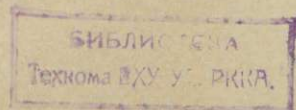 БИБЛИОТЕКА
Техкома ВХУ У. РККА.